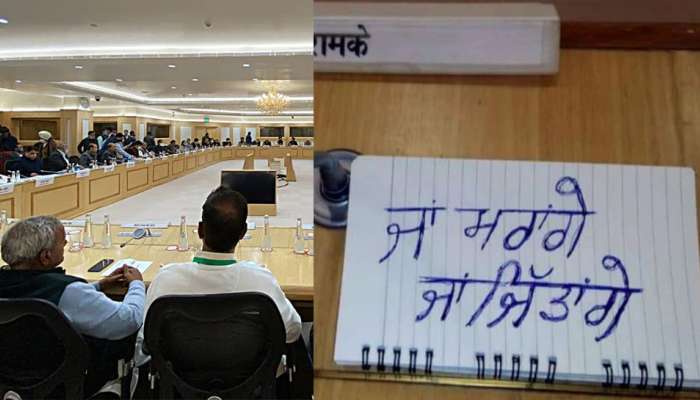 रामके
ਜਾਂ ਮਰਾਂਗੇ
ਜਾਂ ਜਿੱਤਾਂਗੇ